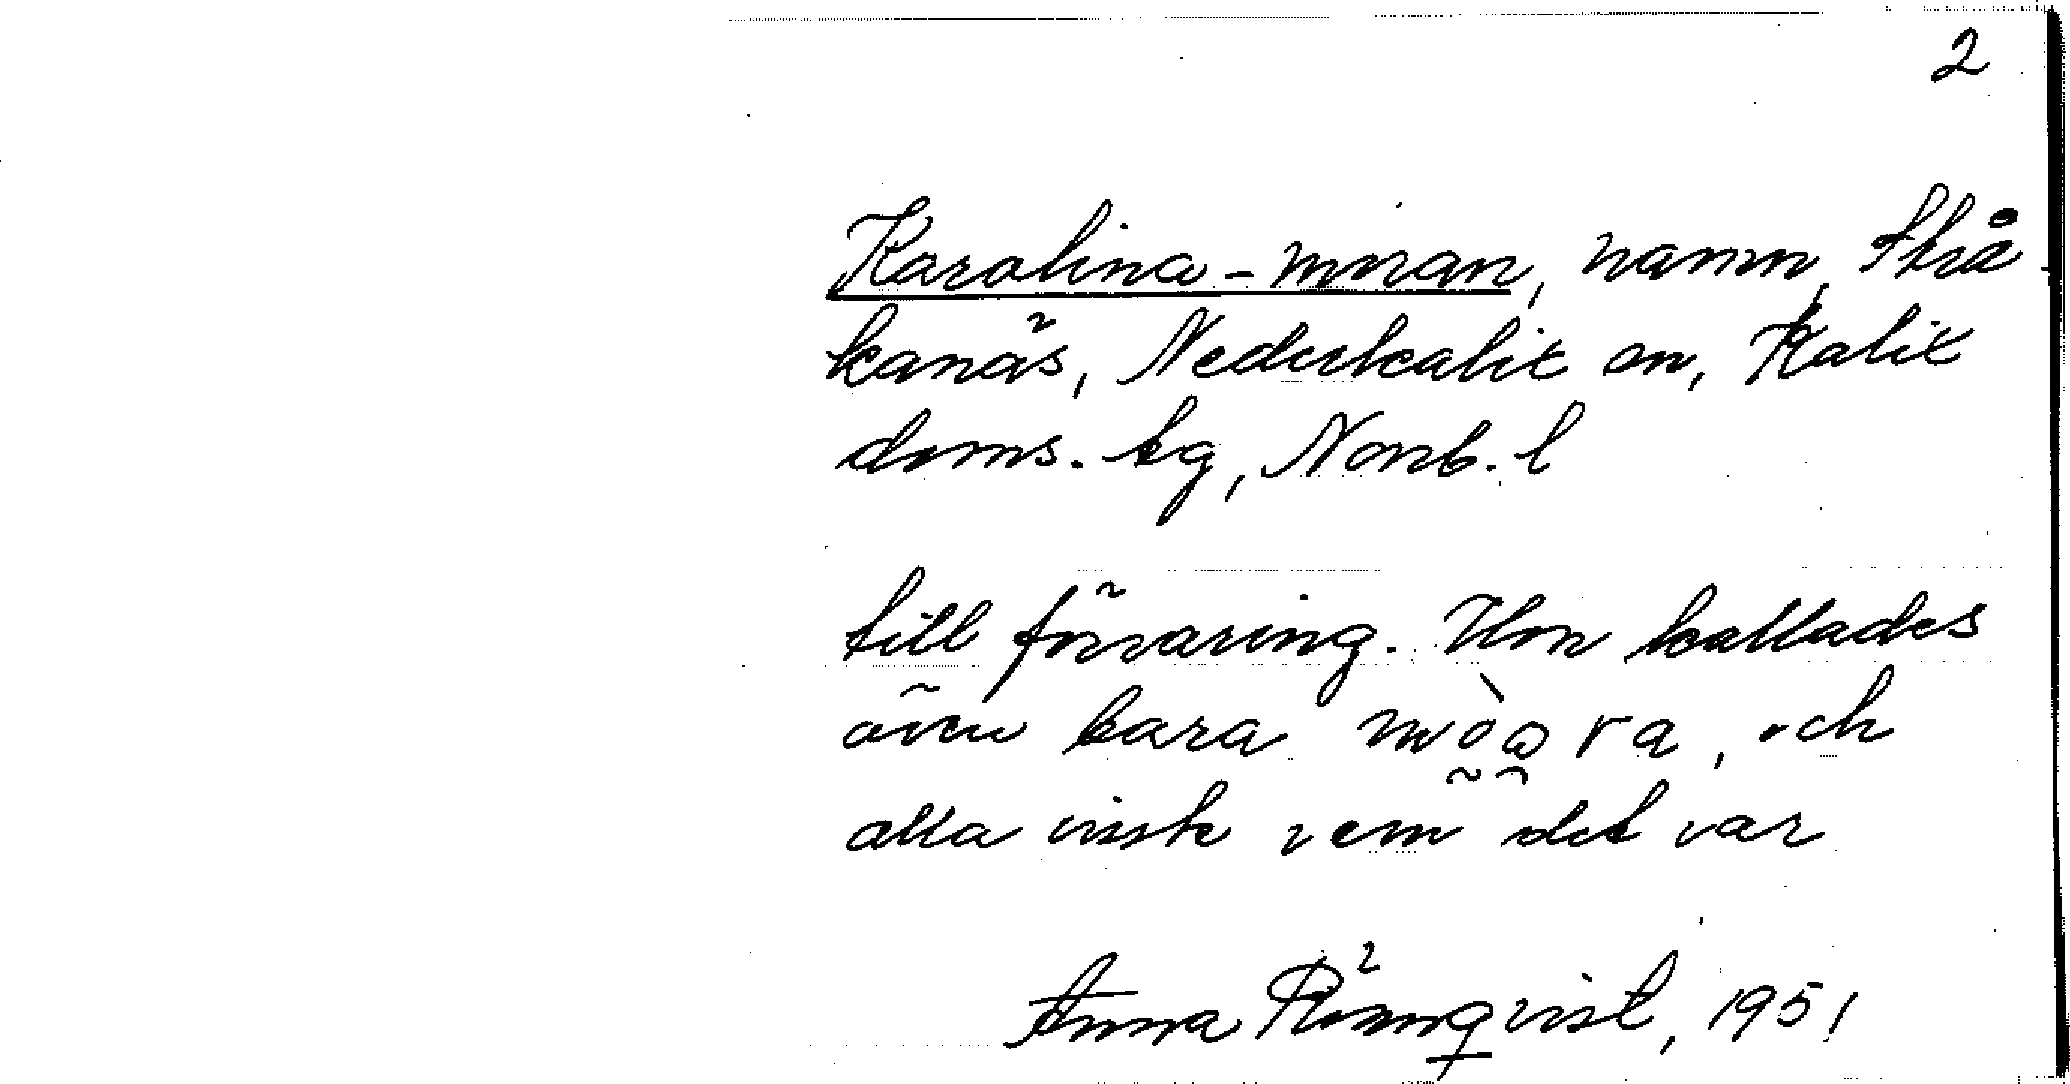 2
Karolina-moran, namn, Strå-
kanäs, Nederkalix sn, Kalix
doms. tg, Norrb. l
till förvaring. Hon kallades
även bara mòạra, och
alla visste vem det var
Anna Rönnqvist, 1951